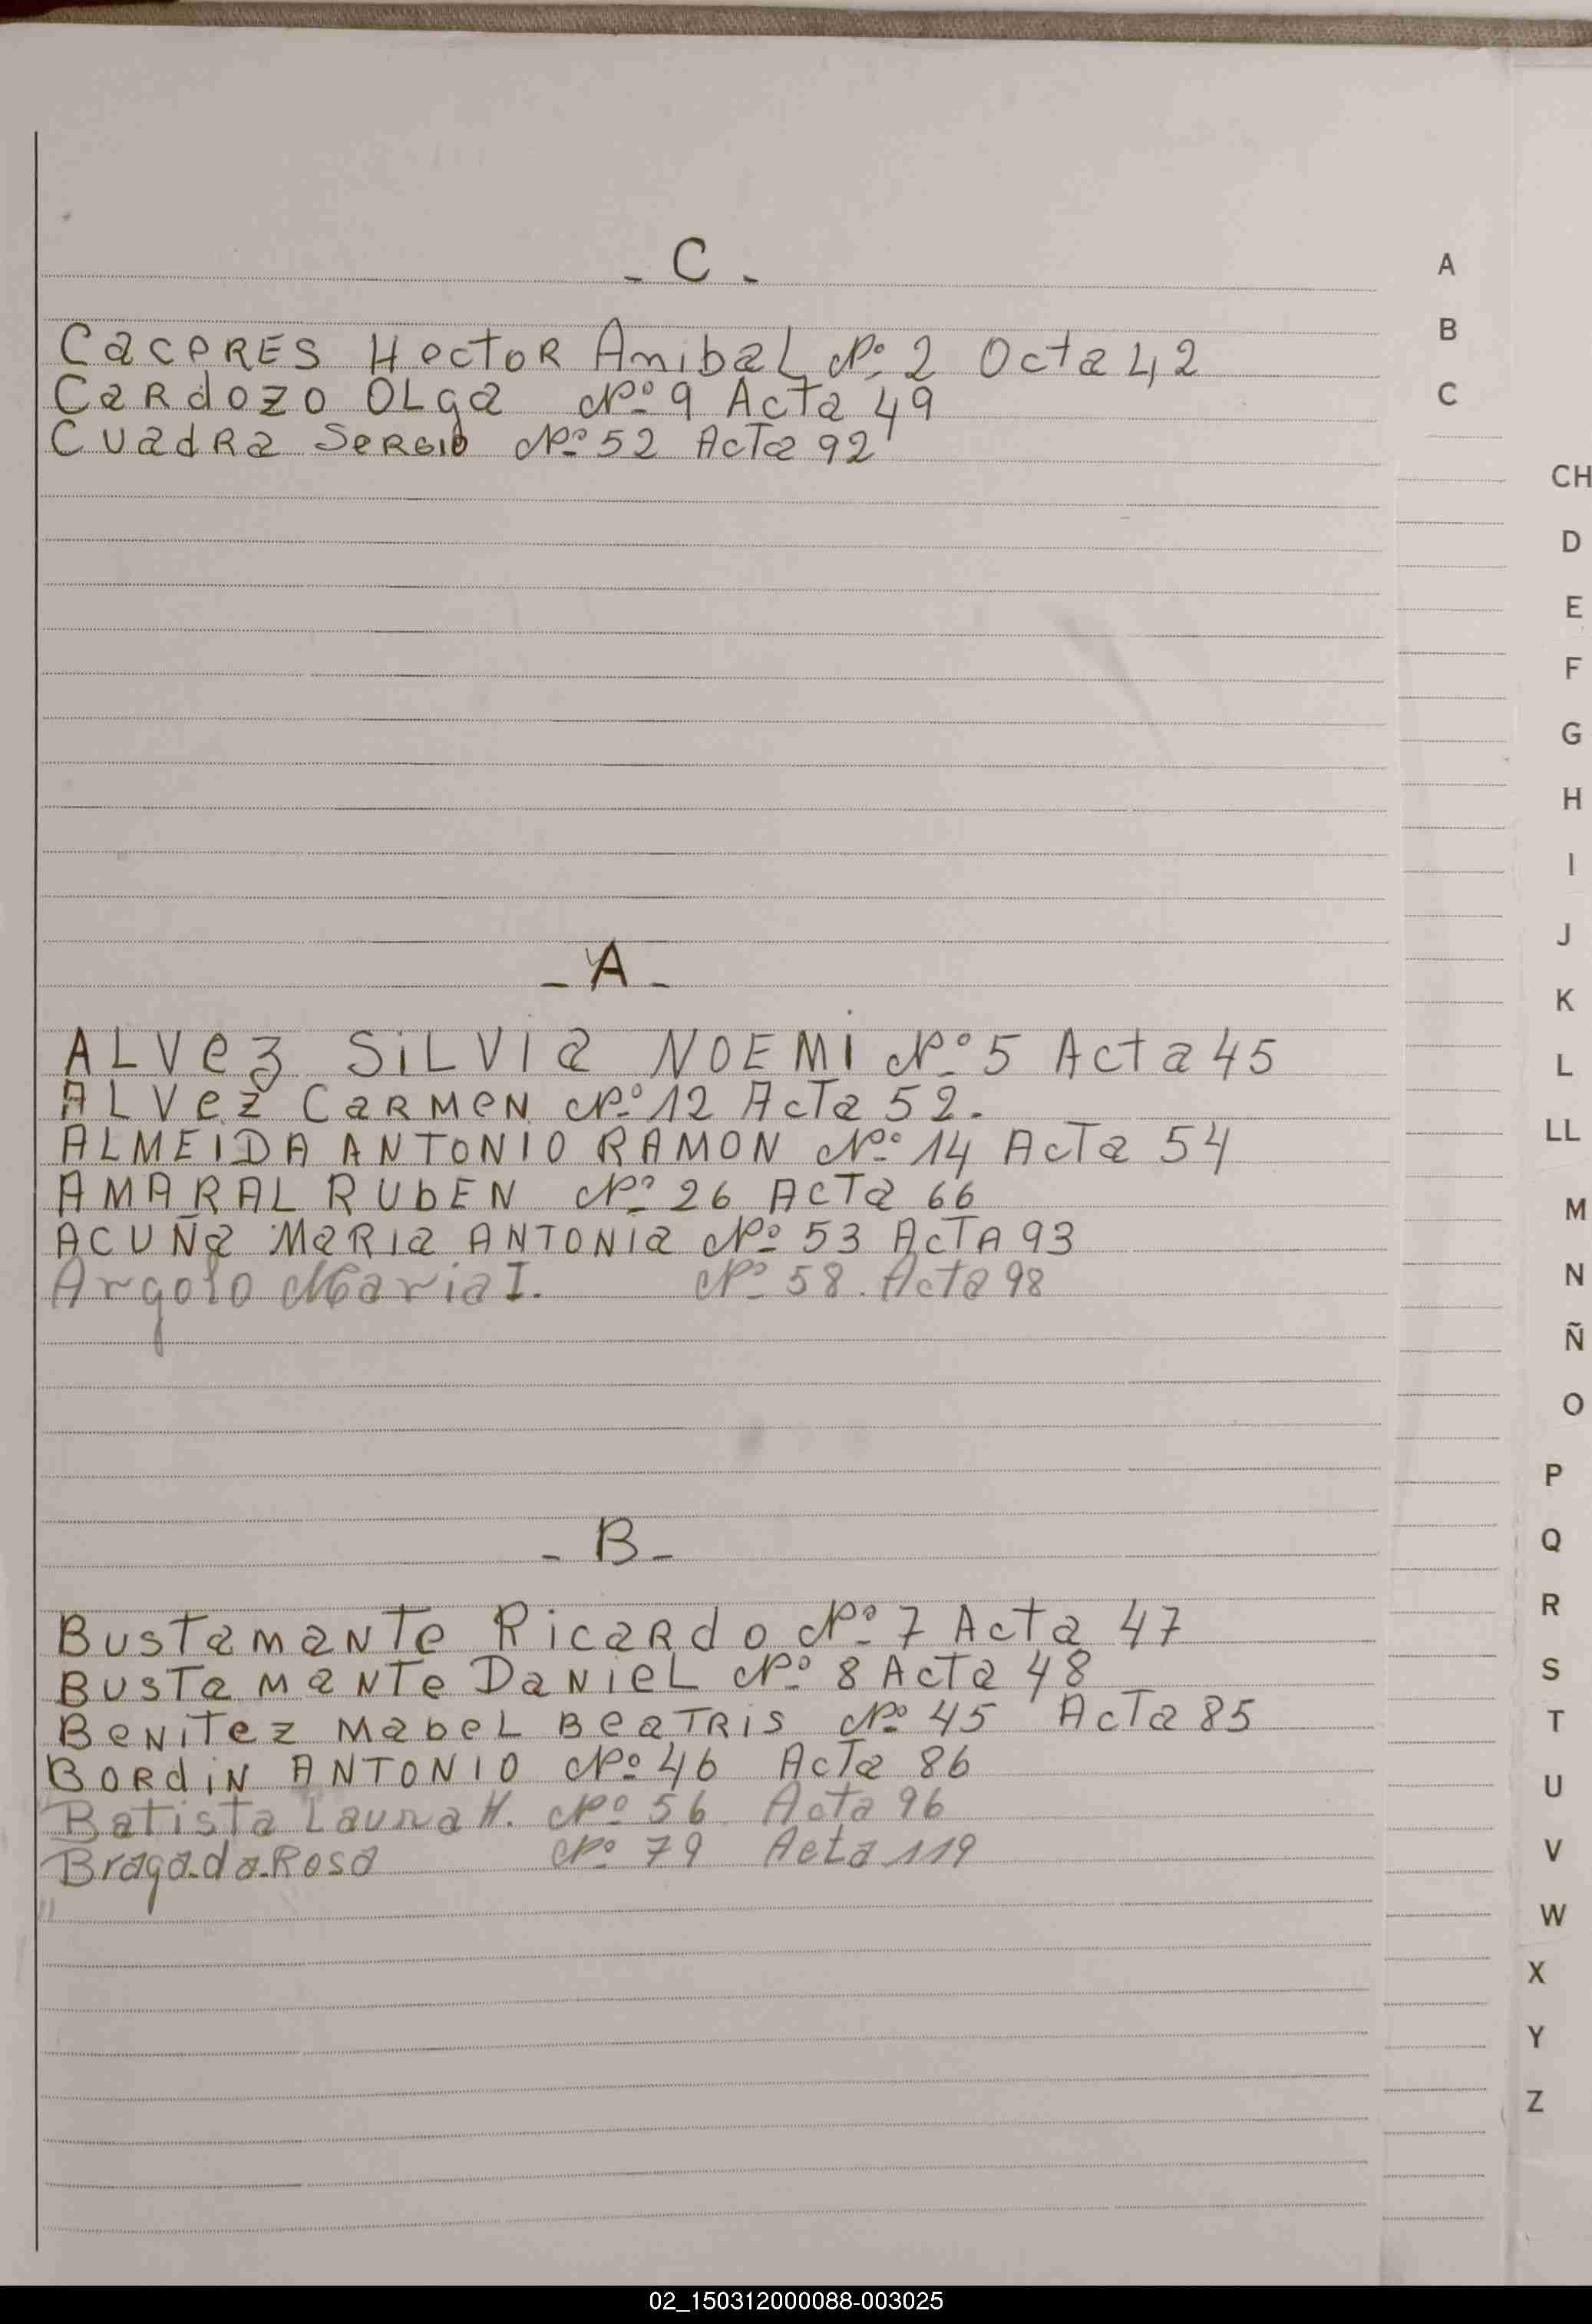 - C -
CaceRES HectoR AnibaL Nº 2 Octa 42
CaRdozo OLga Nº 9 ActA 49
CuadRa SeRGio Nº 52 ActA 92
- A -
ALVez SiLVIa NOEMI Nº 5 Acta 45
ALVez CaRMeN Nº 12 ActA 52.
ALMEIDA ANTONIO RAMON Nº 14 ActA 54
AMARAL RUbEN Nº 26 ActA 66
ACUÑa MaRIa ANTONIa Nº 53 ActA 93
Argolo Maria I. Nº 58. Acta 98
- B -
BusTamaNTe RicaRdo Nº 7 ActA 47
BusTamaNTe DaNieL Nº 8 ActA 48
BeNiTez MabeL BeaTRis Nº 45 ActA 85
BORdiN ANTONIO Nº 46 ActA 86
Batista Laura H. Nº 56 Acta 96
Bragada Rosa Nº 79 Acta 119
A
B
C
CH
D
E
F
G
H
I
J
K
L
LL
M
N
Ñ
O
P
Q
R
S
T
U
V
W
X
Y
Z
02_150312000088-003025